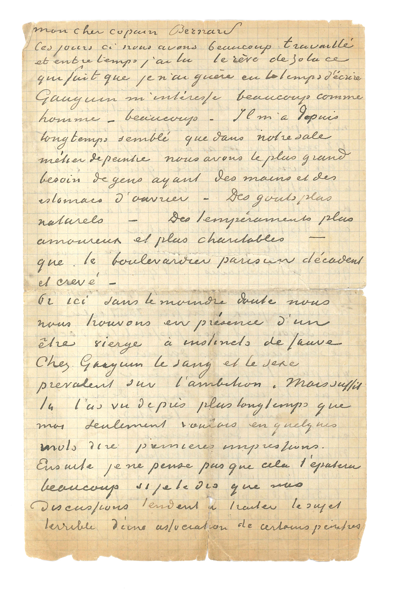 mon cher copain Bernard
Ces jours ci nous avons beaucoup travaillé
et entretemps j'ai lu le rêve de Zola ce
qui fait que je n'ai guère eu le temps d'écrire
Gauguin m'intéresse beaucoup comme
homme – beaucoup – Il m'a depuis
longtemps semblé que dans notre sale
métier de peintre nous avons le plus grand
besoin de gens ayant des mains et des
estomacs d'ouvrier – Des gouts plus
naturels – Des tempéraments plus
amoureux et plus charitables –
que le boulevardier parisien décadent
et crevé –
Or ici sans le moindre doute nous
nous trouvons en présence d'un
être vierge à instincts de fauve
Chez Gauguin le sang et le sexe
prévalent sur l'ambition. Mais suffit
tu l'as vu de près plus longtemps que
moi seulement voulais en quelques
mots dire premières impressions.
Ensuite je ne pense pas que cela t'épatera
beaucoup si je te dis que nos
discussions tendent à traiter le sujet
terrible d'une association de certains peintres